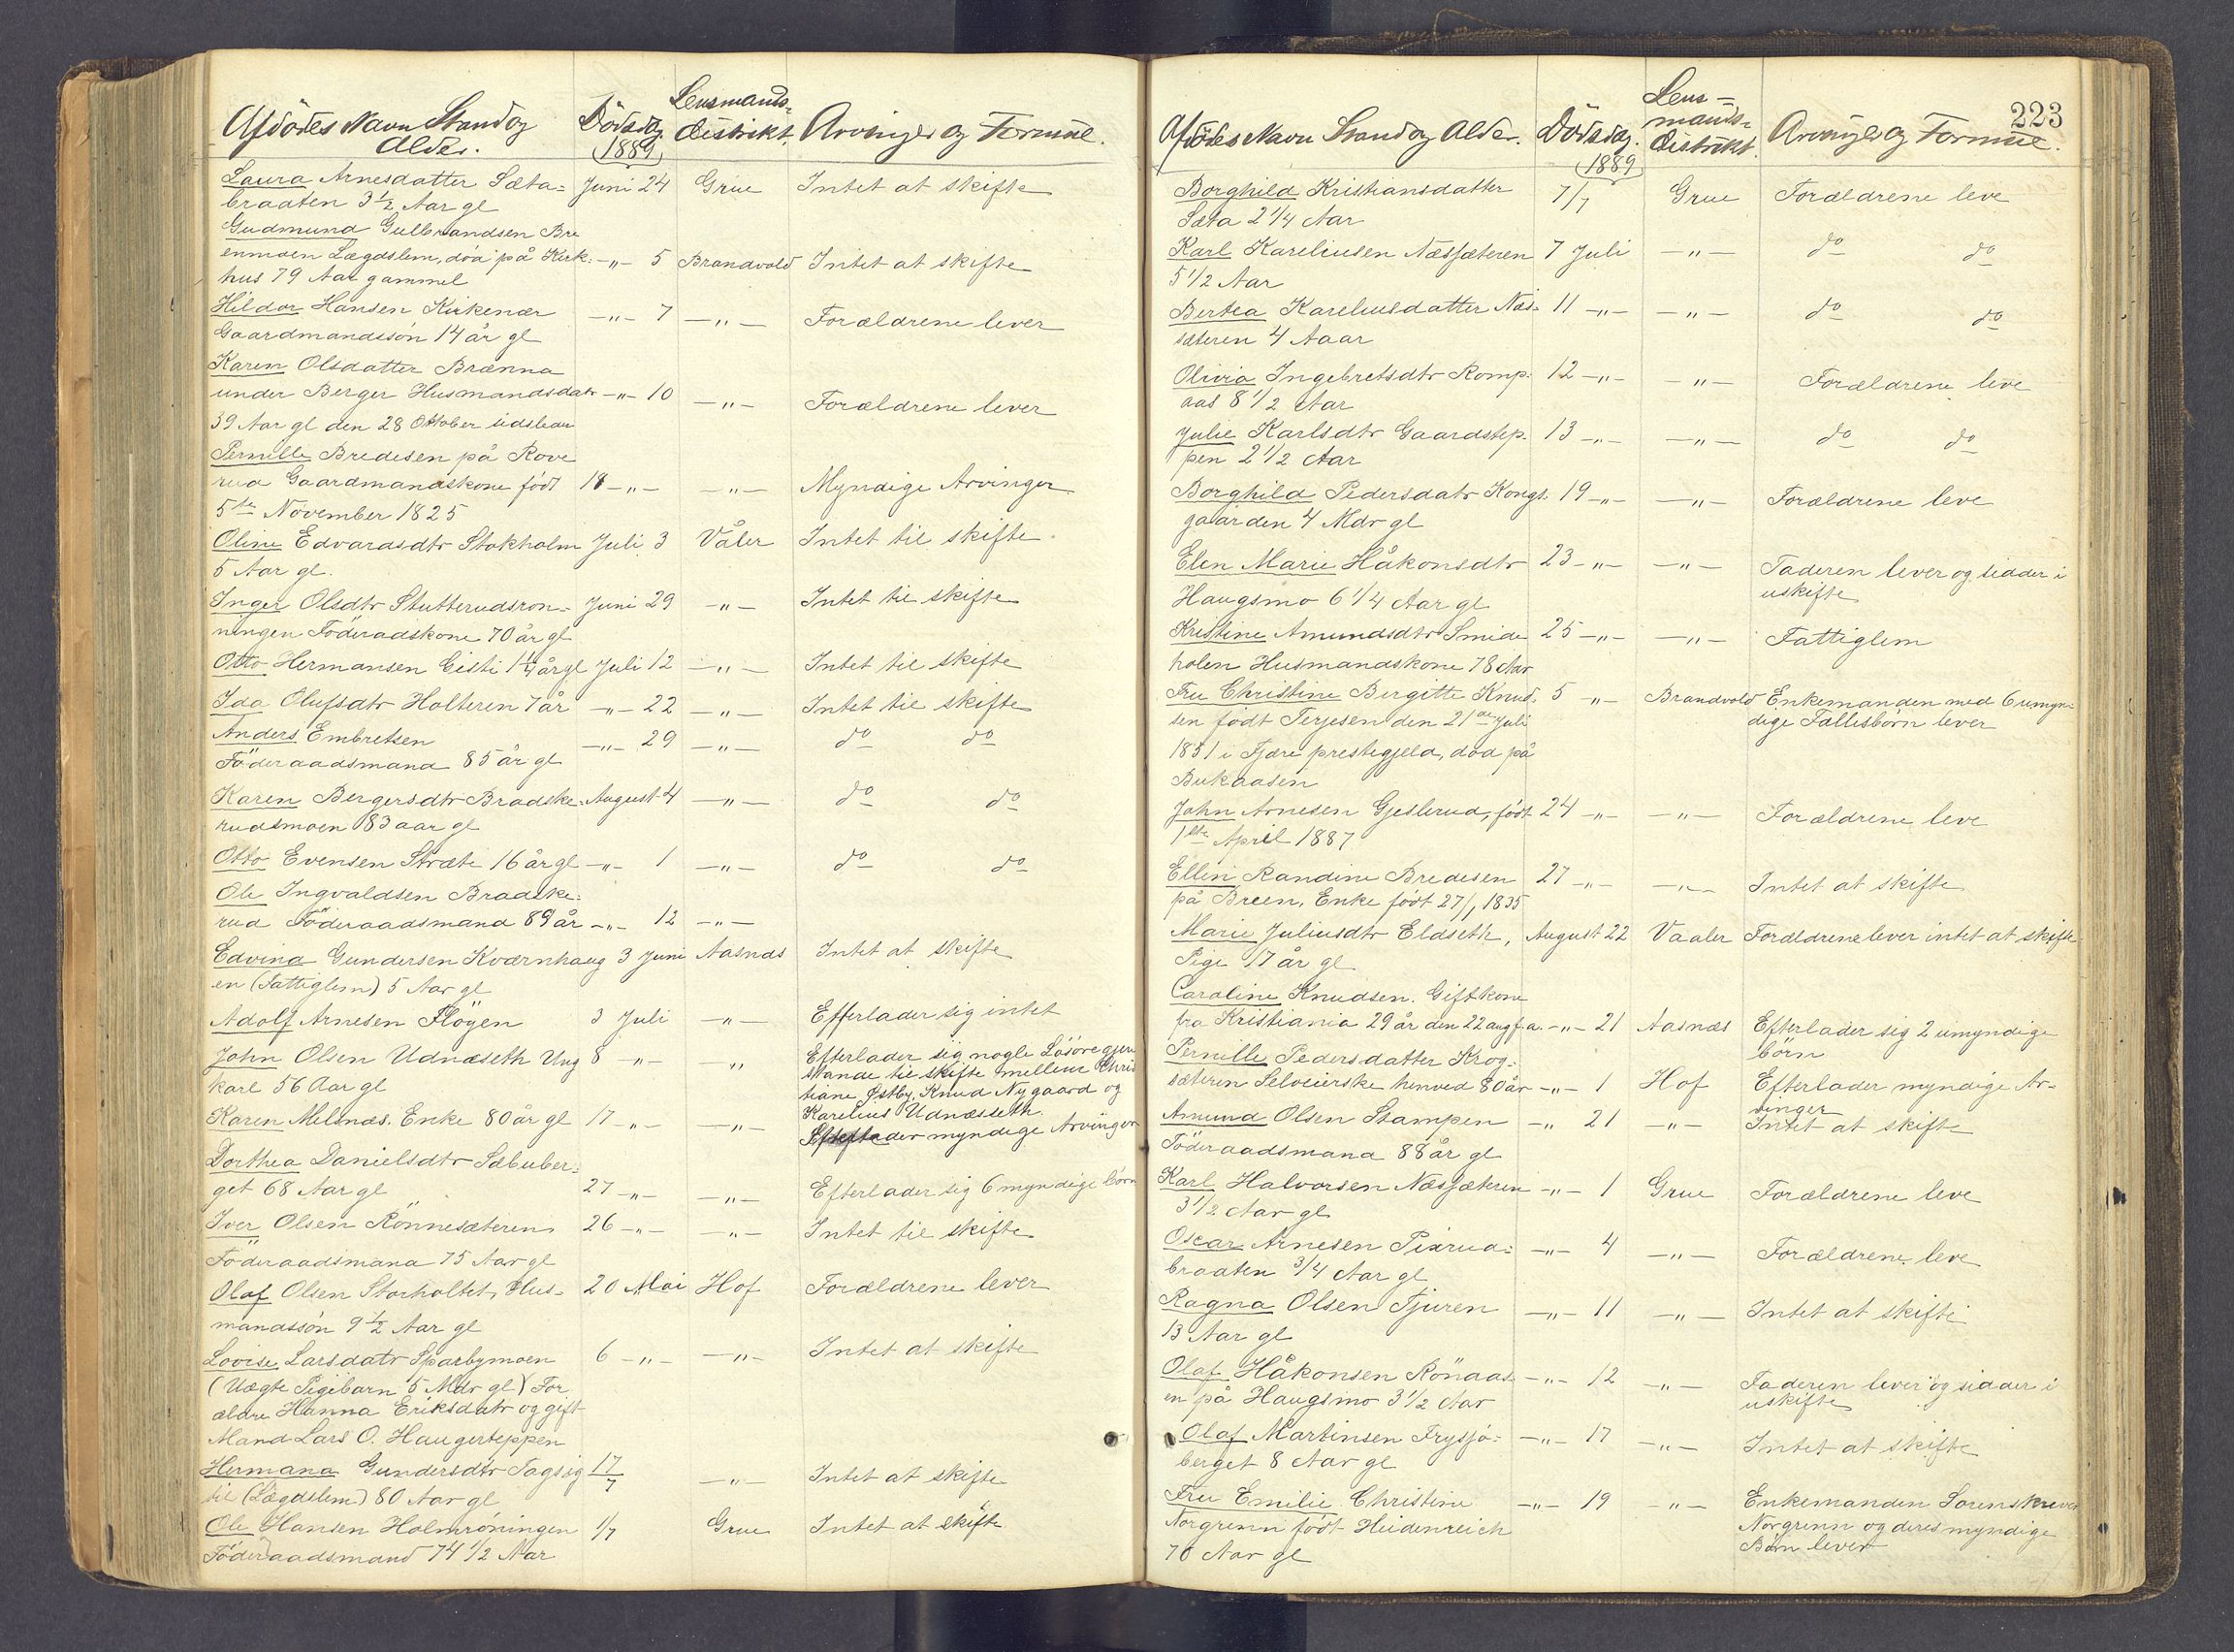 Afdødes Navn Stand og
Alder.
Dödsdag
1889
Lensmands-
distrikt.
Arvinger og Formue.
Laura Arnesdatter Sæta- Juni 24 Grue Intet at skifte
braaten 3 1/2 Aar gl
Gudmund Gulbrandsen Bre
enmoen Lægdslem, död på Kirk- -„- 5 Brandvold Intet at skifte
hus 79 Aar gammel
Hildor Hansen Kirkenær -„- 7 -„- Forældrene lever
Gaardmandssön 14 år gl
Karen Olsdatter Brænna
under Berger Husmandsdatr -„- 10 -„- Forældrene lever
39 Aar gl den 28 Oktober
Pernille Bredesen på Rove
rud Gaardmandskone födt 18 -„- -„- Myndige Arvinger
5te November 1825
Oline Edvardsdtr Stokholm Juli 3 Våler Intet til skifte
5 Aar gl.
Inger Olsdtr Stutterudsron- Juni 29 -„- Intet til skifte
ningen Föderaadskone 70 år gl
Otto Hermansen Eisti 1 1/4 år gl Juli 12 -„- Intet til skifte
Ida Olufsdtr Holteren 7 år -„- 22 -„- Intet til skifte
Anders Embretsen -„- 29 -„- do do
Föderaadsmand 85 år gl
Karen Bergersdtr Bradske- August 4 -„- do do
rudsmoen 83 aar gl
Otto Evensen Stræte 16 år gl -„- 1 -„- do do
Ole Ingvaldsen Bradske-
rud Föderaadsmand 89 år -„- 12 -„-
Edvind Gundersen Kværnhaug 3 Juni Aasnæs Intet at skifte
en (Fattiglem) 5 Aar gl
Adolf Arnesen Flögen 3 Juli -„- Efterlader sig intet
John Olsen Udnæseth Ung 8 -„- „ Efterlader sig nogle Lösöregjen
karl 56 Aar gl
stande til skifte mellem Chris
tiane Østby, Knud Nygaard og
Karelius Udnæsseth.
Karen Melnæs. Enke 80 år gl 17 -„- -„- Efterlader myndige Arvinger
Dorthea Danielsdtr Sæbuber-
get 68 Aar gl 27 -„- -„- Efterlader sig 6 myndige börn
Iver Olsen Rönnesæteren 26 -„- -„- Intet til skifte
Föderaadsmand 75 Aar gl
Olaf Olsen Storholtet, Hus- 20 Mai Hof Forældrene lever
mandssön 9 1/2 Aar gl
Lovise Larsdatr Sparbymoen 6 -„- -„- Intet at skifte
(Uægte Pigebarn 5 Mdr gl) For
ældre Hanna Eriksdatr og gift
Mand Lars O. Haugerteppen
Hermana Gundersdtr Tagsig 17/7 -„- Intet at skifte
til (Lægdslem) 80 Aar gl
Ole Hansen Holmröningen 1/7 Grue Intet at skifte
Föderaadsmand 74 1/2 Aar
223
Afdödes Navn Stand og Alder.
Dödsdag.
1889
Lens-
mands-
distrikt.
Arvinger og Formue.
Borghild Kristiansdatter 7/7 Grue Forældrene leve
Sæta 2 1/4 Aar
Karl Kareliusen Næssæteren 7 Juli -„- do do
5 1/2 Aar
Bertea Kareliusdatter Næs- 11 -„- -„- do do
sæteren 4 Aaar
Olivia Ingebretsdtr Romp- 12 -„- -„- Forældrene leve
aas 8 1/2 Aar
Julie Karlsdtr Gaardstep- 13 -„- -„- do do
pen 2 1/2 Aar
Borghild Pedersdatr Kongs- 19 -„- -„- Forældrene leve
gaarden 4 Mdr gl
Elen Marie Håkonsdtr 23 -„- -„- Faderen lever og sidder i
Haugsmo 6 1/4 Aar gl uskifte
Kristine Amundsdtr Smide 25 -„- -„- Fattiglem
holen Husmandskone 78 Aar
Fru Christine Bergitte Knud- 5 -„- Brandvold Enkemanden med 6 umyn-
sen födt Terjesen den 21de Juli dige Fællesbörn lever
1851 i Fjære prestegjeld, död på
Bukaasen
John Arnesen Gjeslerud, födt 24 -„- -„- Forældrene leve
1ste April 1887
Ellin Randine Bredesen 27 -„- -„- Intet at skifte
på Breen, Enke födt 27/1 1835
Marie Juliusdtr Eldseth, August 22 Vaaler Forældrene lever intet at skifte
Pige 17 år gl
Caroline Knudsen. Gift kone
fra Kristiania 29 år den 22 aug f.a. -„- 21 Aasnæs Efterlader sig 2 umyndige
börn
Pernille Pedersdatter Krog-
sæteren Selveierske henved 80 år -„- 1 Hof Efterlader myndige Ar-
vinger
Amund Olsen Stampen -„- 21 -„- Intet at skifte
Föderaadsmand 88 år gl
Karl Halvorsen Næssæteren -„- 1 Grue Forældrene leve
3 1/2 Aar gl
Oscar Arnesen Pixrud- -„- 4 -„- Forældrene leve
braaten 3/4 Aar gl
Ragna Olsen Tjuren -„- 11 -„- Intet at skifte
13 Aar gl
Olaf Håkonsen Rönaas- -„- 12 -„- Faderen lever og sidder i
en på Haugsmo 3 1/2 Aar uskifte
Olaf Martinsen Frysjö- -„- 17 -„- Intet at skifte
berget 8 Aar gl
Fru Emilie Christine -„- 19 -„- Enkemanden Sorenskriver
Norgrenn födt Heidenreich Norgrenn og deres myndige
70 Aar gl Börn lever